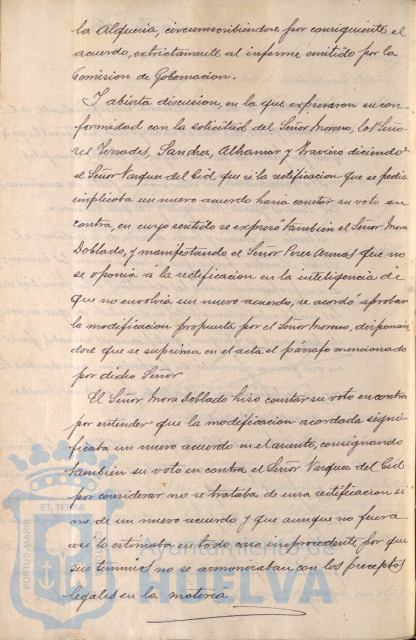 la Alqueria, circumscribiendose por consiguiente el
acuerdo, extrictamente al informe emitido por la
Comision de Gobernacion.
Y abierta discusion, en la que expresaron su con-
formidad con la solicitud del Señor Moreno, los Seño-
res Vernades, Sanchez, Alhamar y Traviero diciendo
el Señor Vazquez del Cid que si la rectificacion que se pedia
implicaba un nuevo acuerdo haria constar su voto en
contra, en cuyo sentido se expresó tambien el Señor Mora
Doblado, y manifestando el Señor Perez Armas que no
se oponia á la rectificacion en la inteligencia de
que no envolvia un nuevo acuerdo, se acordó aprobar
la modificacion propuesta por el Señor Moreno, disponien
dose que se suprima en el acta el párrafo mencionado
por dicho Señor
El Señor Mora Doblado hizo constar su voto en contra
por entender que la modificacion acordada signi-
ficaba un nuevo acuerdo en el asunto, consignando
tambien su voto en contra el Señor Vazquez del Cid
por considerar no se trataba de una rectificacion si
no de un nuevo acuerdo y que aunque no fuera
asi lo estimaba en todo caso improcedente por que
sus terminos no se armonizaban con los preceptos
legales en la materia
PORTUS MARIS
ET TERRE
Ayuntamiento de
HUELVA